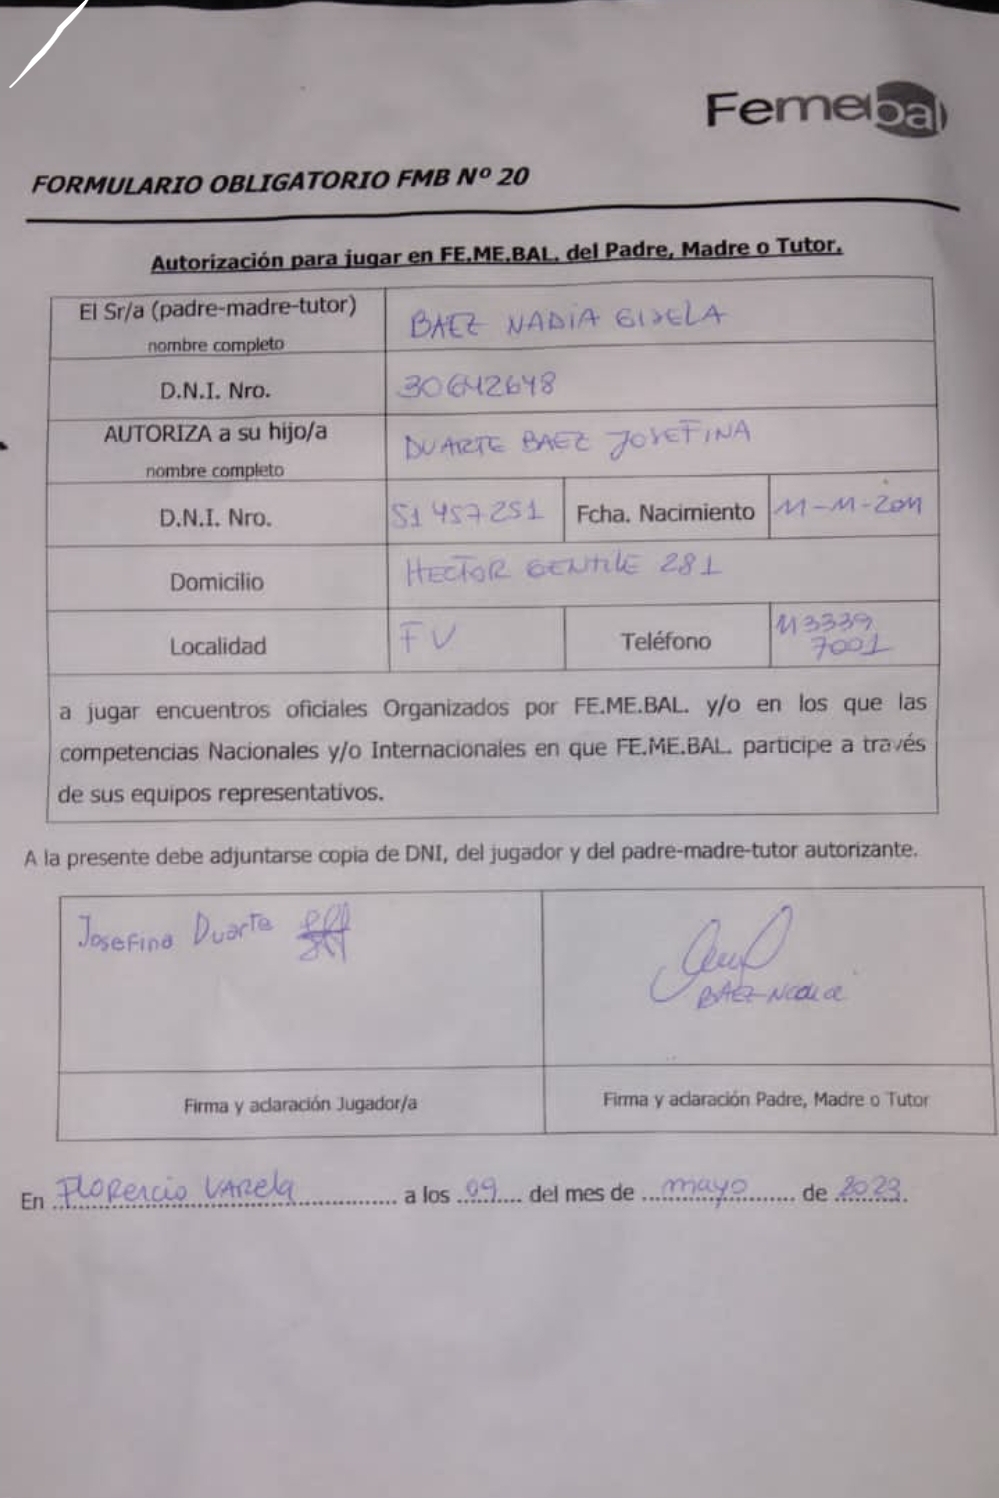 Femebal
FORMULARIO OBLIGATORIO FMB Nº 20
Autorización para jugar en FE.ME.BAL. del Padre, Madre o Tutor.
El Sr/a (padre-madre-tutor)
nombre completo
BAEZ NADIA GISELA
D.N.I. Nro.
30642648
AUTORIZA a su hijo/a
nombre completo
DUARTE BAEZ JOSEFINA
D.N.I. Nro.
51457251
Fcha. Nacimiento
11-11-2011
Domicilio
HECTOR GENTILE 281
Localidad
FV
Teléfono
113339
7001
a jugar encuentros oficiales Organizados por FE.ME.BAL. y/o en los que las
competencias Nacionales y/o Internacionales en que FE.ME.BAL. participe a través
de sus equipos representativos.
A la presente debe adjuntarse copia de DNI, del jugador y del padre-madre-tutor autorizante.
Josefina Duarte
BAEZ
Firma y aclaración Jugador/a
Firma y aclaración Padre, Madre o Tutor
En Florencio Varela a los 09 del mes de mayo de 2023.